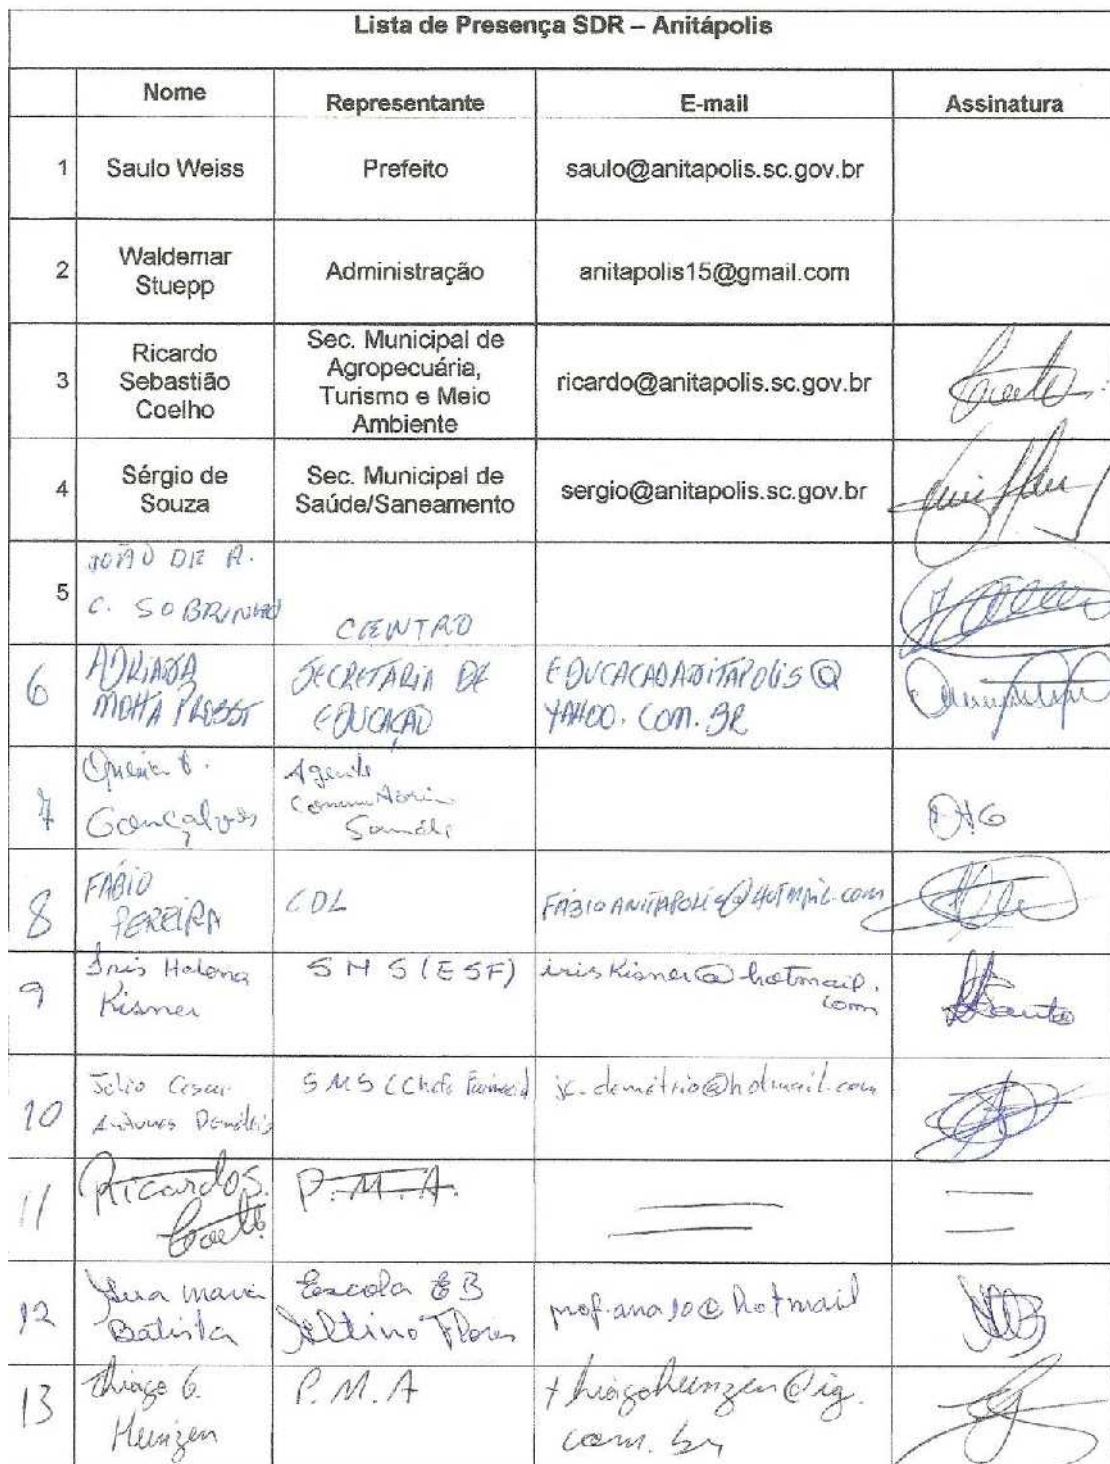 Lista de Presença SDR – Anitápolis
Nome Representante E-mail Assinatura
1 Saulo Weiss Prefeito saulo@anitapolis.sc.gov.br
2 Waldemar
Stuepp
Administração anitapolis15@gmail.com
3 Ricardo
Sebastião
Coelho
Sec. Municipal de
Agropecuária,
Turismo e Meio
Ambiente
ricardo@anitapolis.sc.gov.br
4 Sérgio de
Souza
Sec. Municipal de
Saúde/Saneamento
sergio@anitapolis.sc.gov.br
5 JOÃO DE A.
C. SOBRINHO
CENTRO
6 ADRIANA
MOHTA PROBST
SECRETARIA DE
EDUCAÇÃO
EDUCACAOANITAPOLIS@
YAHOO.COM.BR
7
Gonçalves
Agente
8 FÁBIO
PEREIRA
CDL FABIOANITAPOLIS@HOTMAIL.com
9 Iris Helena
Kisner
SMS (ESF) iriskisner@hotmail.
com
10 Julio Cesar
Antunes Demétrio
SMS (Chefe jc.demétrio@hotmail.com
11 Ricardo S.
Coelho
P.M.A.
12 Ana maria
Batista
Escola EB
Altino Flores
prof.ana10@hotmail
13 Thiago G.
Heinzen
P.M.A
thiagoheinzen@ig.
com.br